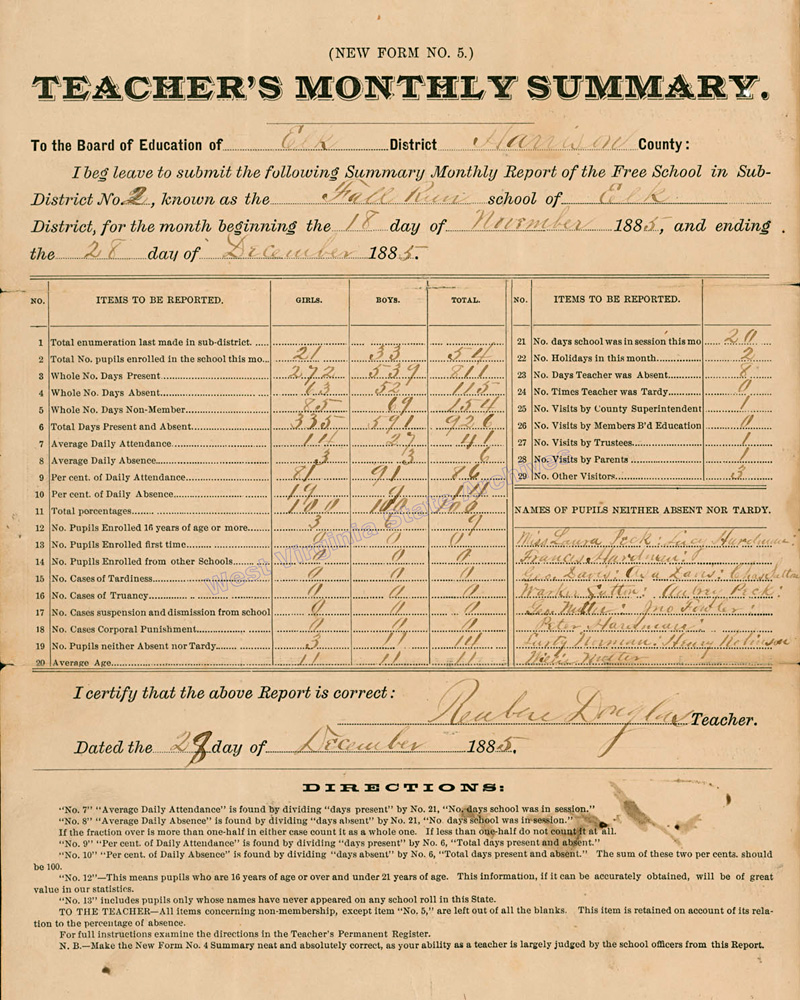 (NEW FORM NO. 5.)
TEACHER'S MONTHLY SUMMARY.
To the Board of Education of Elk District Harrison County:
I beg leave to submit the following Summary Monthly Report of the Free School in Sub-
District No. 2, known as the Fall Run school of Elk
District, for the month beginning the 18 day of November 1885, and ending
the 28 day of December 1885.
NO. ITEMS TO BE REPORTED. GIRLS. BOYS. TOTAL.
1 Total enumeration last made in sub-district.
2 Total No. pupils enrolled in the school this mo... 21 33 54
3 Whole No. Days Present 272 539 811
4 Whole No. Days Absent 63 52 115
5 Whole No. Days Non-Member 85 69 154
6 Total Days Present and Absent 335 591 926
7 Average Daily Attendance 14 27 41
8 Average Daily Absence 3 3 6
9 Per cent. of Daily Attendance 81 91 86
10 Per cent. of Daily Absence 19 9 14
11 Total porcentages 100 100 100
12 No. Pupils Enrolled 16 years of age or more 3 6 9
13 No. Pupils Enrolled first time 0 0 0
14 No. Pupils Enrolled from other Schools 0 0 0
15 No. Cases of Tardiness 0 0 0
16 No. Cases of Truancy 0 0 0
17 No. Cases suspension and dismission from school 0 0 0
18 No. Cases Corporal Punishment 0 0 0
19 No. Pupils neither Absent nor Tardy 3 11 14
20 Average Age 11 11 11
NO. ITEMS TO BE REPORTED.
21 No. days school was in session this mo 20
22 No. Holidays in this month 2
23 No. Days Teacher was Absent 8
24 No. Times Teacher was Tardy 0
25 No. Visits by County Superintendent 1
26 No. Visits by Members B'd Education 0
27 No. Visits by Trustees 1
28 No. Visits by Parents 1
29 No. Other Visitors 3
NAMES OF PUPILS NEITHER ABSENT NOR TARDY.
Miss Laura Peck: Lucy Hardman:
Francis Hardman:
Geo. Davis: Asa Davis: Chas Sutton
Warker Sutton: Aubry Peck:
Geo. Jno Fowler:
Peter Hardman:
Norman: Henry Robinson

West Virginia State Archives
I certify that the above Report is correct:
Reuben Douglas Teacher.
Dated the 28 day of December 1885.
DIRECTIONS:
"No. 7" "Average Daily Attendance" is found by dividing "days present" by No. 21, "No. days school was in session."
"No. 8" "Average Daily Absence" is found by dividing "days absent" by No. 21, "No days school was in session."
If the fraction over is more than one-half in either case count it as a whole one. If less than one-half do not count it at all.
"No. 9" "Per cent. of Daily Attendance" is found by dividing "days present" by No. 6, "Total days present and absent."
"No. 10" "Per cent. of Daily Absence" is found by dividing "days absent" by No. 6, "Total days present and absent." The sum of these two per cents. should
be 100.
"No. 12"—This means pupils who are 16 years of age or over and under 21 years of age. This information, if it can be accurately obtained, will be of great
value in our statistics.
"No. 13" includes pupils only whose names have never appeared on any school roll in this State.
TO THE TEACHER—All items concerning non-membership, except item "No. 5," are left out of all the blanks. This item is retained on account of its rela-
tion to the percentage of absence.
For full instructions examine the directions in the Teacher's Permanent Register.
N. B.—Make the New Form No. 4 Summary neat and absolutely correct, as your ability as a teacher is largely judged by the school officers from this Report.